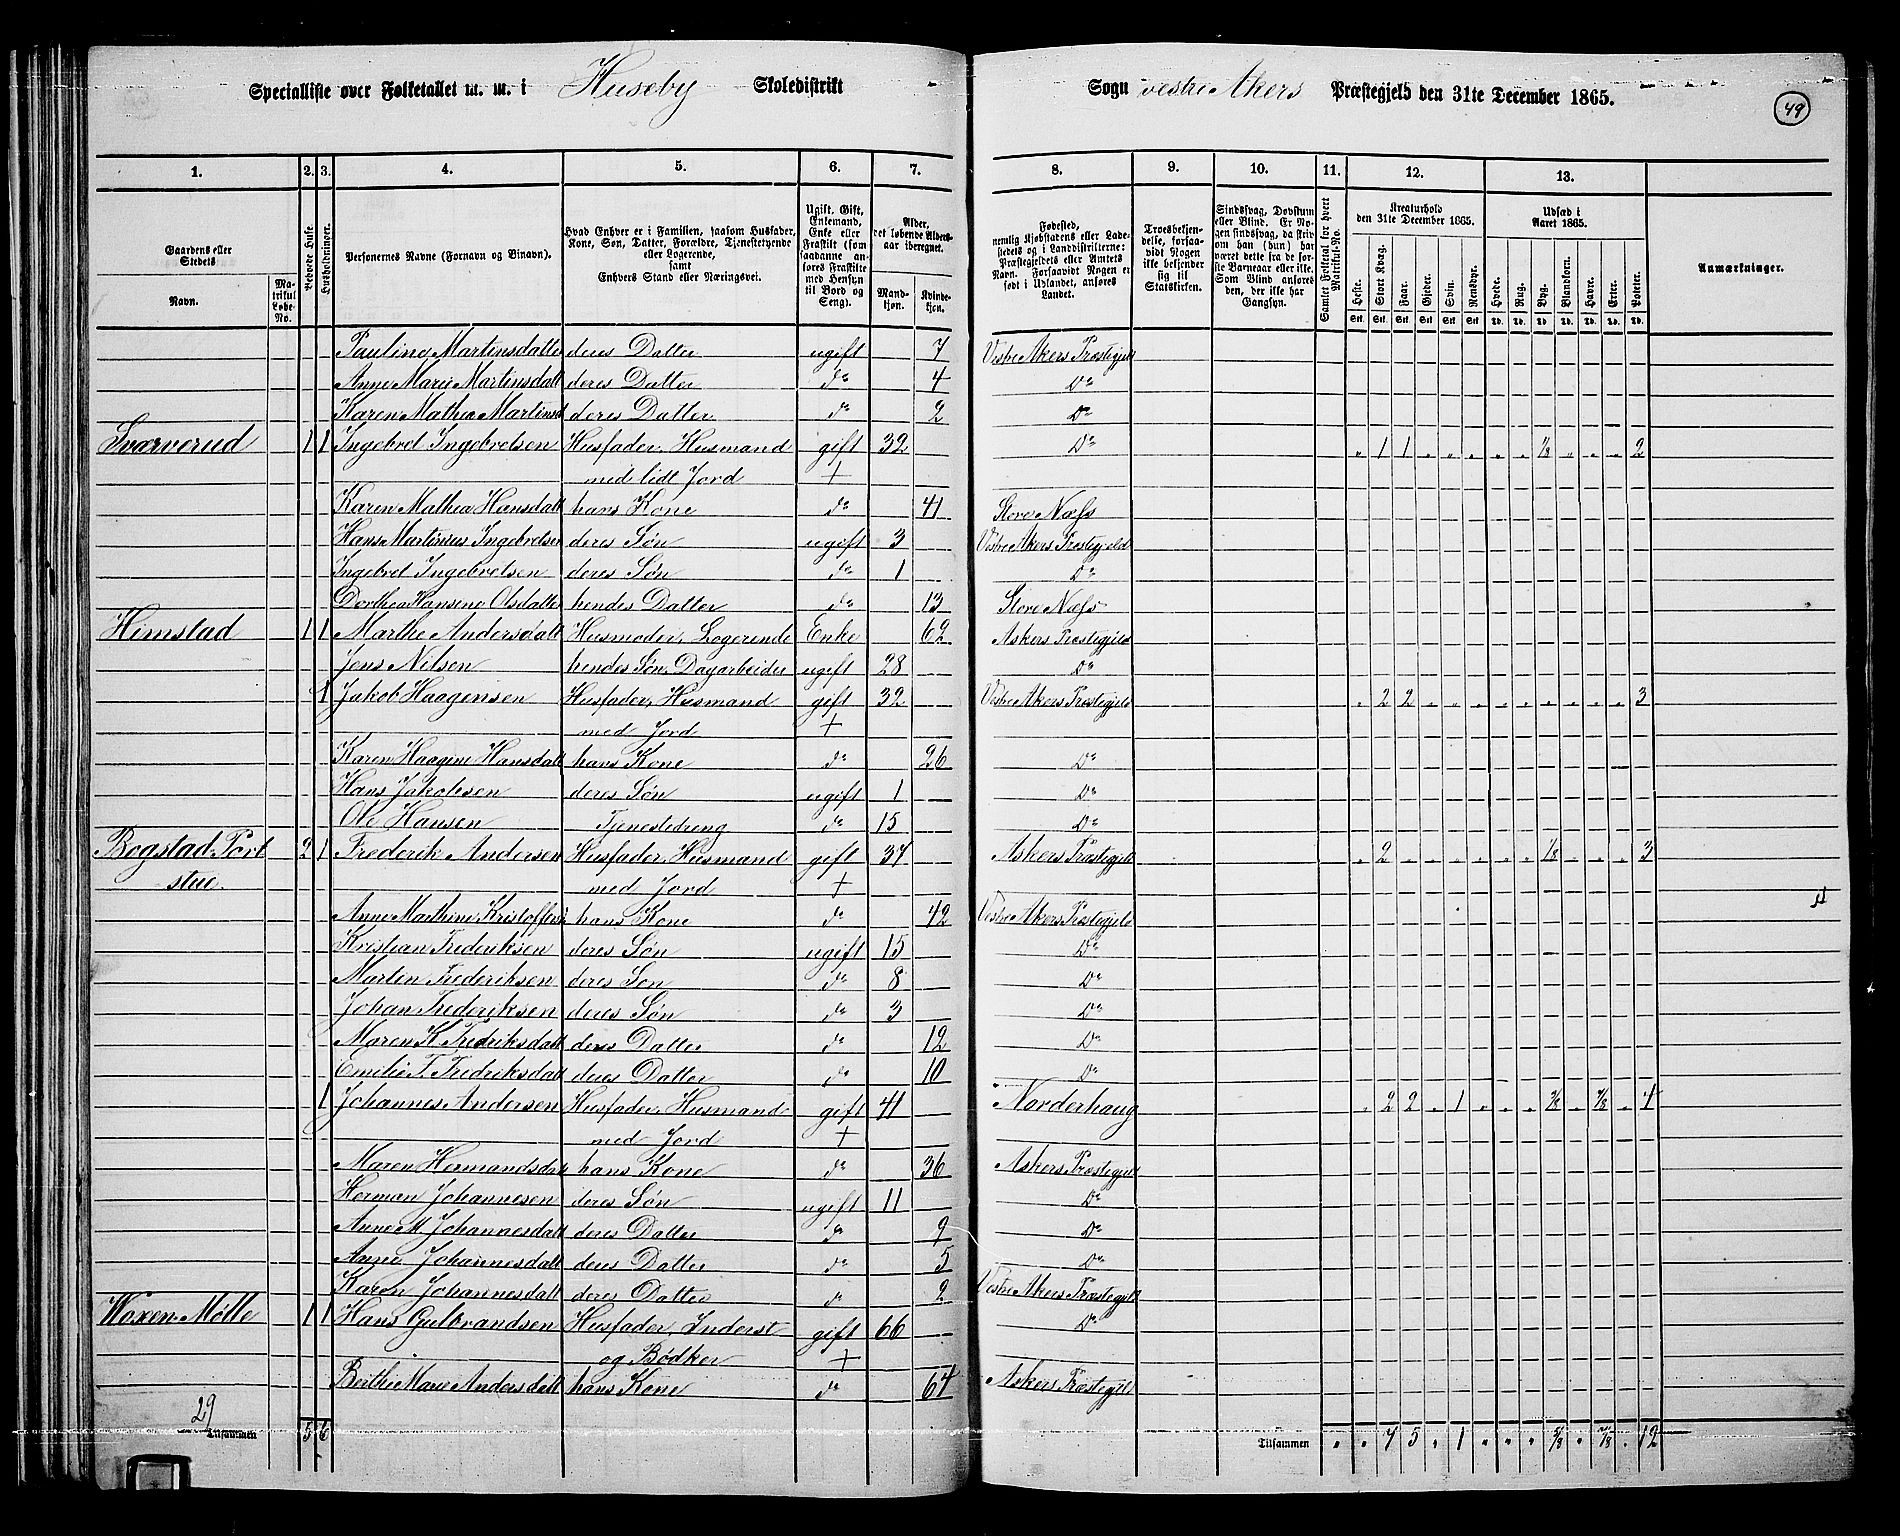 Specialliste over Folketallet m. m. i Huseby Skoledistrikt
Sogn vestre Akers Præstegjeld den 31te December 1865.
49
1. 2. 3. 4. 5. 6. 7. 8. 9. 10. 11. 12. 13.
Gaardens eller Stedets
Navn.
Matrikul Løbe-No.
Beboede Huse.
Husholdninger.
Personernes Navne (Fornavn og Binavn).
Hvad Enhver er i Familien, saasom Husfader, Kone, Søn, Datter, Forældre, Tjenestetyende eller Logerende, samt Enhvers Stand eller Næringsvei.
Ugift, Gift, Enkemand, Enke eller Fraskilt (som saadanne anføres Fraskilte med Hensyn til Bord og Seng).
Alder, det løbende Aldersaar iberegnet.
Mandkjøn.
Kvindekjøn.
Fødested, nemlig Kjøbstadens eller Ladestedets og i Landdistrikterne: Præstegjeldets eller Amtets Navn. Forsaavidt Nogen er født i Udlandet, anføres Landet.
Troesbekjendelse, forsaavidt Nogen ikke bekjender sig til Statskirken.
Sindssvag, Døvstum eller Blind. Er Nogen sindssvag, da skrives om han (hun) har været dette fra de første Barneaar eller ikke. Som Blind anføres den, der ikke har Gangsyn.
Samlet Folketal for hvert Matrikul-No.
Kreaturhold den 31te December 1865.
Heste. Stort Kvæg. Faar. Gjeder. Svin. Rensdyr.
Udsæd i Aaret 1865.
Hvede. Rug. Byg. Blandkorn. Havre. Erter. Poteter.
Stk. Stk. Stk. Stk. Stk. Stk. Td. Td. Td. Td. Td. Td. Td.
Anmærkninger.
Pauline Martinsdatter deres Datter ugift 7 Vestre Akers Præstegjeld
Anne Marie Martinsdatt deres Datter do 4 Do
Karen Mathea Martinsd deres Datter do 2 Do
Svarverud 1 1 Ingebret Ingebretsen Husfader, Husmand gift 32 Do „ 1 1 „ „ „ „ „ 1/8 „ „ „ 2
med lidt Jord +
Karen Mathea Hansdatt hans Kone do 41 Store Næss
Hans Martinius Ingebretsen deres Søn ugift 3 Vestre Akers Præstegjeld
Ingebret Ingebretsen deres Søn do 1 Do
Dorthea Hansene Olsdatter hendes Datter do 13 Store Næss
Himstad 1 1 Marthe Andersdatt Husmoder, Logerende Enke 62 Askers Præstegjeld
Jens Nilsen hendes Søn, Dagarbeider ugift 28 Do
1 Jakob Haagensen Husfader, Husmand gift 32 Vestre Akers Præstegjeld „ 2 2 „ „ „ „ „ „ „ „ „ 3
med Jord +
Karen Haagine Hansdatt hans Kone do 26 Do
Hans Jakobsen deres Søn ugift 1 Do
Ole Hansen Tjenestedreng do 15 Do
Bogstad Port 2 1 Frederik Andersen Husfader, Husmand gift 37 Askers Præstegjeld „ 2 „ „ „ „ „ „ 1/8 „ „ „ 3
stue. med Jord +
Anne Mathine Kristoffers hans Kone do 42 Vestre Akers Præstegjeld
Kristian Frederiksen deres Søn ugift 15 Do
Martin Frederiksen deres Søn do 8 Do
Johan Frederiksen deres Søn do 3 Do
Maren K. Fredriksdatt deres Datter do 12 Do
Emilie F. Fredriksdatt deres Datter do 10 Do
1 Johannes Andersen Husfader, Husmand gift 41 Norderhaug „ 2 2 „ 1 „ „ „ 3/8 „ 7/8 „ 4
med Jord +
Maren Hermandsdatt hans Kone do 36 Askers Præstegjeld
Herman Johannesen deres Søn ugift 11 Do
Anne M. Johannesdatt deres Datter do 9 Do
Anne Johannesdatt deres Datter do 5 Do
Karen Johannesdatt deres Datter do 2 Vestre Akers Præstegjeld
Woxen Mølle 1 1 Hans Gulbrandsen Husfader, Inderst gift 66 Do
og Bødker +
Berthe Marie Andersdatt hans Kone do 64 Askers Præstegjeld
29
Tilsammen 5 6
Tilsammen „ „ 7 5 „ 1 „ „ „ 5/8 „ 7/8 „ 12